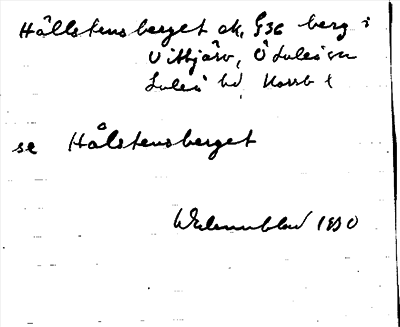 Hållstensberget ek. §36 berg i
Vittjärv, Ö Luleå sn
Luleå hd, Norrb l
se Hålstensberget
1930